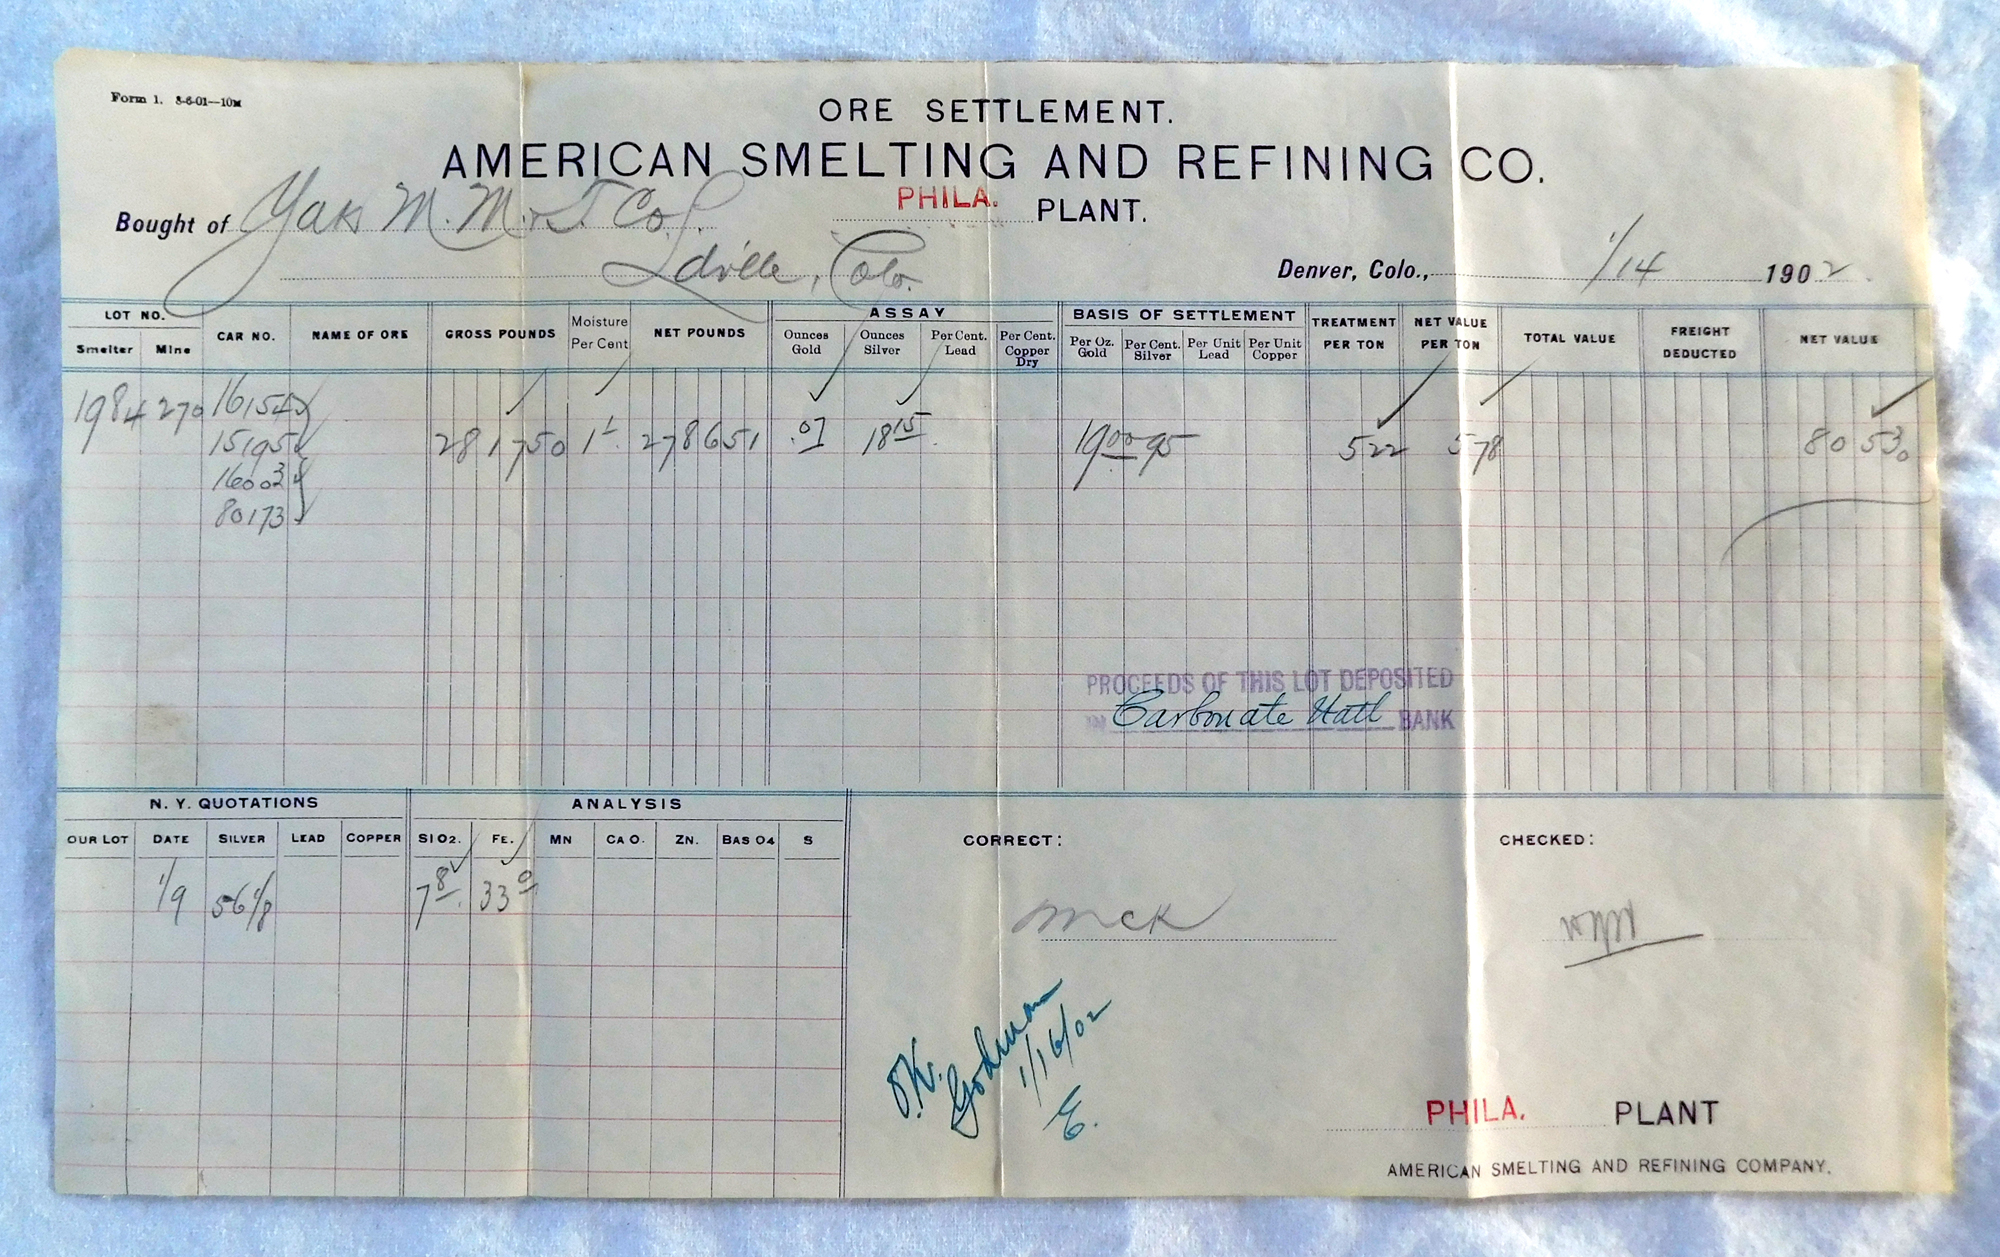 Form 1. 8-6-01—10M
ORE SETTLEMENT.
AMERICAN SMELTING AND REFINING CO.
PHILA. PLANT.
Bought of Yak M. M. & T. Co.
Ldville, Colo.
Denver, Colo., 1/14 1902
LOT NO. CAR NO. NAME OF ORE GROSS POUNDS Moisture Per Cent NET POUNDS ASSAY BASIS OF SETTLEMENT TREATMENT PER TON NET VALUE PER TON TOTAL VALUE FREIGHT DEDUCTED NET VALUE
Smelter Mine Ounces Gold Ounces Silver Per Cent. Lead Per Cent. Copper Dry Per Oz. Gold Per Cent. Silver Per Unit Lead Per Unit Copper
1984 270 16154
15195 281750 1 1 278651 .07 18 15 19 00 95 522 578 80530
16003
80173
PROCEEDS OF THIS LOT DEPOSITED
IN Carbonate Natl BANK
N. Y. QUOTATIONS ANALYSIS
OUR LOT DATE SILVER LEAD COPPER SI O2. FE. MN CA O. ZN. BAS O4 S
1/9 56 1/8 7 8 33 0
CORRECT: CHECKED:
McK
O.K.
Goodman
1/16/02
E.
PHILA. PLANT
AMERICAN SMELTING AND REFINING COMPANY.